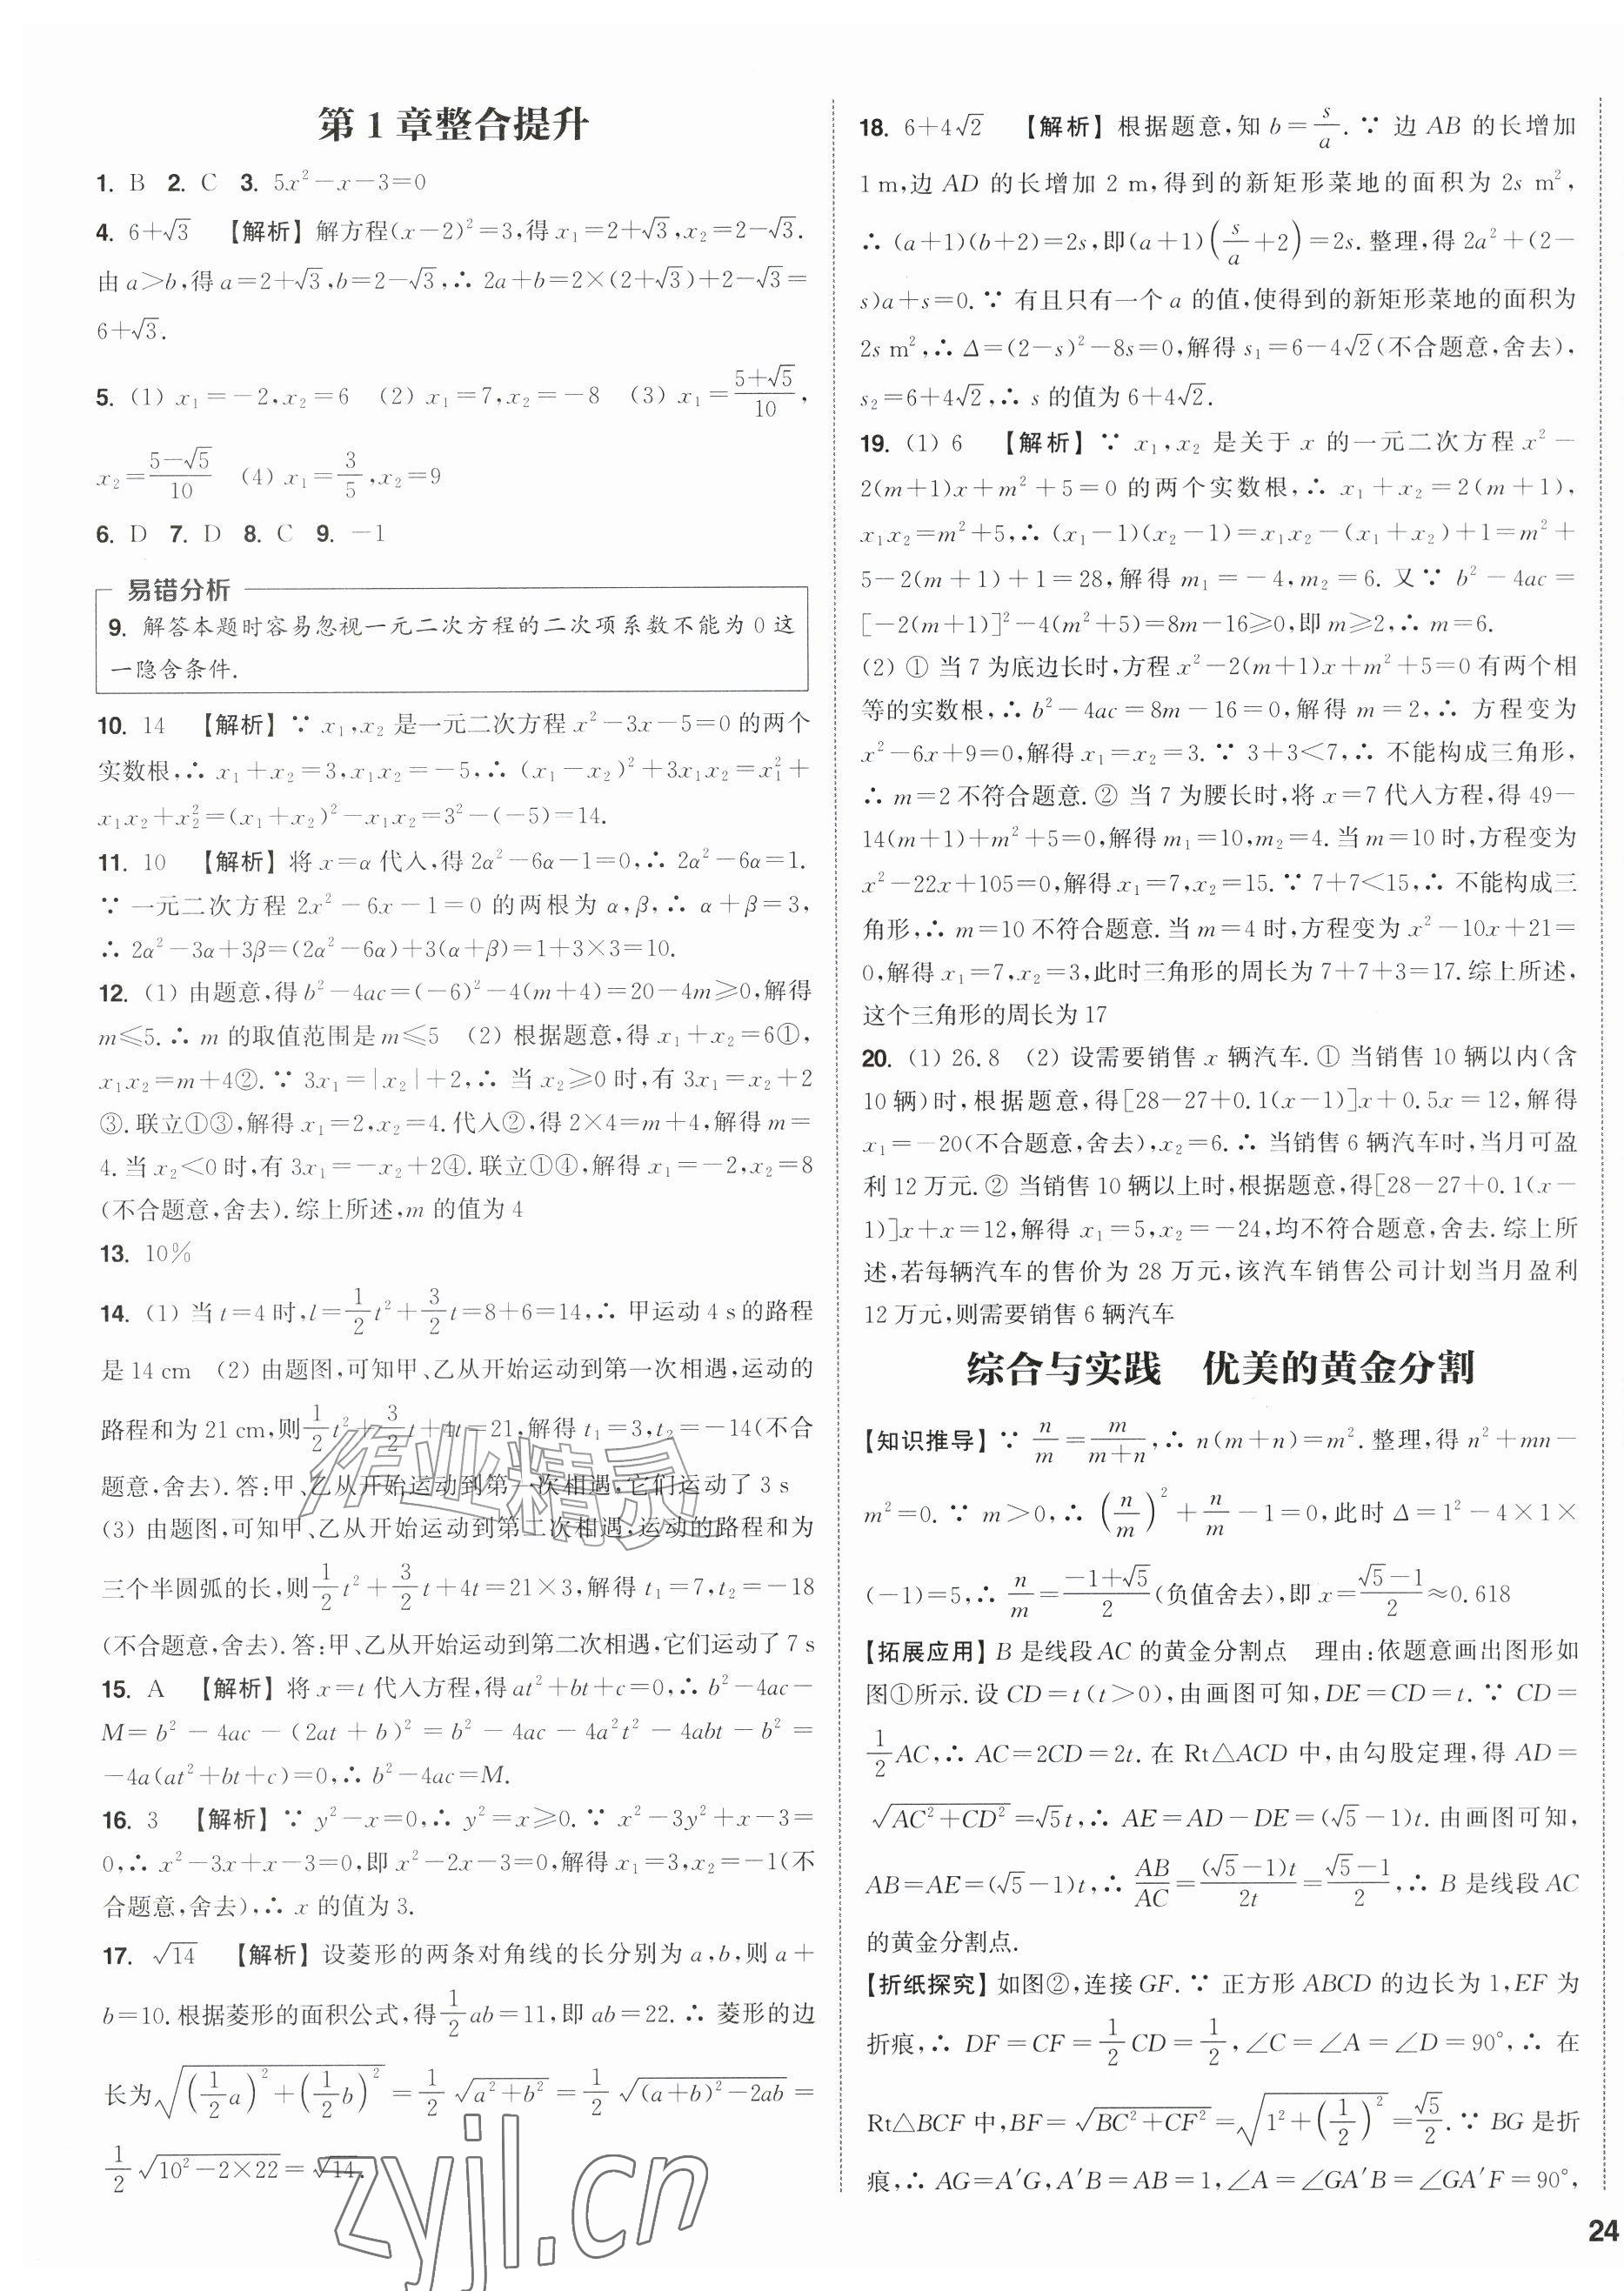 第 1 章整合提升
1. B 2. C 3. 5x²－x－3＝0
4. 6＋√3 【解析】解方程(x－2)²＝3,得 x₁＝2＋√3,x₂＝2－√3.
由 a＞b,得 a＝2＋√3,b＝2－√3,∴ 2a＋b＝2×(2＋√3)＋2－√3＝
6＋√3.
5. (1) x₁＝－2,x₂＝6 (2) x₁＝7,x₂＝－8 (3) x₁＝(5＋√5)/10,
x₂＝(5－√5)/10 (4) x₁＝3/5,x₂＝9
6. D 7. D 8. C 9. －1
易错分析
9. 解答本题时容易忽视一元二次方程的二次项系数不能为 0 这
一隐含条件.
10. 14 【解析】∵ x₁,x₂ 是一元二次方程 x²－3x－5＝0 的两个
实数根,∴ x₁＋x₂＝3,x₁x₂＝－5,∴ (x₁－x₂)²＋3x₁x₂＝x₁²＋
x₁x₂＋x₂²＝(x₁＋x₂)²－x₁x₂＝3²－(－5)＝14.
11. 10 【解析】将 x＝α 代入,得 2α²－6α－1＝0,∴ 2α²－6α＝1.
∵ 一元二次方程 2x²－6x－1＝0 的两根为 α,β,∴ α＋β＝3,
∴ 2α²－3α＋3β＝(2α²－6α)＋3(α＋β)＝1＋3×3＝10.
12. (1) 由题意,得 b²－4ac＝(－6)²－4(m＋4)＝20－4m≥0,解得
m≤5.∴ m 的取值范围是 m≤5 (2) 根据题意,得 x₁＋x₂＝6①,
x₁x₂＝m＋4②.∵ 3x₁＝|x₂|＋2,∴ 当 x₂≥0 时,有 3x₁＝x₂＋2
③.联立①③,解得 x₁＝2,x₂＝4.代入②,得 2×4＝m＋4,解得 m＝
4.当 x₂＜0 时,有 3x₁＝－x₂＋2④.联立①④,解得 x₁＝－2,x₂＝8
(不合题意,舍去).综上所述,m 的值为 4
13. 10%
14. (1) 当 t＝4 时,l＝1/2t²＋3/2t＝8＋6＝14,∴ 甲运动 4 s 的路程
是 14 cm (2) 由题图,可知甲、乙从开始运动到第一次相遇,运动的
路程和为 21 cm,则1/2t²＋3/2t＋4t＝21,解得 t₁＝3,t₂＝－14(不合
题意,舍去).答:甲、乙从开始运动到第一次相遇,它们运动了 3 s
(3) 由题图,可知甲、乙从开始运动到第二次相遇,运动的路程和为
三个半圆弧的长,则1/2t²＋3/2t＋4t＝21×3,解得 t₁＝7,t₂＝－18
(不合题意,舍去).答:甲、乙从开始运动到第二次相遇,它们运动了 7 s
15. A 【解析】将 x＝t 代入方程,得 at²＋bt＋c＝0,∴ b²－4ac－
M＝b²－4ac－(2at＋b)²＝b²－4ac－4a²t²－4abt－b²＝
－4a(at²＋bt＋c)＝0,∴ b²－4ac＝M.
16. 3 【解析】∵ y²－x＝0,∴ y²＝x≥0.∵ x²－3y²＋x－3＝
0,∴ x²－3x＋x－3＝0,即 x²－2x－3＝0,解得 x₁＝3,x₂＝－1(不
合题意,舍去),∴ x 的值为 3.
17. √14 【解析】设菱形的两条对角线的长分别为 a,b,则 a＋
b＝10.根据菱形的面积公式,得1/2ab＝11,即 ab＝22.∴ 菱形的边
长为√((1/2a)²＋(1/2b)²)＝1/2√(a²＋b²)＝1/2√((a＋b)²－2ab)＝
1/2√(10²－2×22)＝√14.
18. 6＋4√2 【解析】根据题意,知 b＝s/a.∵ 边 AB 的长增加
1 m,边 AD 的长增加 2 m,得到的新矩形菜地的面积为 2s m²,
∴ (a＋1)(b＋2)＝2s,即(a＋1)(s/a＋2)＝2s.整理,得 2a²＋(2－
s)a＋s＝0.∵ 有且只有一个 a 的值,使得到的新矩形菜地的面积为
2s m²,∴ Δ＝(2－s)²－8s＝0,解得 s₁＝6－4√2(不合题意,舍去),
s₂＝6＋4√2,∴ s 的值为 6＋4√2.
19. (1) 6 【解析】∵ x₁,x₂ 是关于 x 的一元二次方程 x²－
2(m＋1)x＋m²＋5＝0 的两个实数根,∴ x₁＋x₂＝2(m＋1),
x₁x₂＝m²＋5,∴ (x₁－1)(x₂－1)＝x₁x₂－(x₁＋x₂)＋1＝m²＋
5－2(m＋1)＋1＝28,解得 m₁＝－4,m₂＝6.又∵ b²－4ac＝
[－2(m＋1)]²－4(m²＋5)＝8m－16≥0,即 m≥2,∴ m＝6.
(2) ① 当 7 为底边长时,方程 x²－2(m＋1)x＋m²＋5＝0 有两个相
等的实数根,∴ b²－4ac＝8m－16＝0,解得 m＝2,∴ 方程变为
x²－6x＋9＝0,解得 x₁＝x₂＝3.∵ 3＋3＜7,∴ 不能构成三角形,
∴ m＝2 不符合题意.② 当 7 为腰长时,将 x＝7 代入方程,得 49－
14(m＋1)＋m²＋5＝0,解得 m₁＝10,m₂＝4.当 m＝10 时,方程变为
x²－22x＋105＝0,解得 x₁＝7,x₂＝15.∵ 7＋7＜15,∴ 不能构成三
角形,∴ m＝10 不符合题意.当 m＝4 时,方程变为 x²－10x＋21＝
0,解得 x₁＝7,x₂＝3,此时三角形的周长为 7＋7＋3＝17.综上所述,
这个三角形的周长为 17
20. (1) 26.8 (2) 设需要销售 x 辆汽车.① 当销售 10 辆以内(含
10 辆)时,根据题意,得[28－27＋0.1(x－1)]x＋0.5x＝12,解得
x₁＝－20(不合题意,舍去),x₂＝6.∴ 当销售 6 辆汽车时,当月可盈
利 12 万元.② 当销售 10 辆以上时,根据题意,得[28－27＋0.1(x－
1)]x＋x＝12,解得 x₁＝5,x₂＝－24,均不符合题意,舍去.综上所
述,若每辆汽车的售价为 28 万元,该汽车销售公司计划当月盈利
12 万元,则需要销售 6 辆汽车
综合与实践 优美的黄金分割
【知识推导】∵ n/m＝m/(m＋n),∴ n(m＋n)＝m².整理,得 n²＋mn－
m²＝0.∵ m＞0,∴ (n/m)²＋n/m－1＝0,此时 Δ＝1²－4×1×
(－1)＝5,∴ n/m＝(－1＋√5)/2(负值舍去),即 x＝(√5－1)/2≈0.618
【拓展应用】B 是线段 AC 的黄金分割点 理由:依题意画出图形如
图①所示.设 CD＝t(t＞0),由画图可知,DE＝CD＝t.∵ CD＝
1/2AC,∴ AC＝2CD＝2t.在 Rt△ACD 中,由勾股定理,得 AD＝
√(AC²＋CD²)＝√5t,∴ AE＝AD－DE＝(√5－1)t.由画图可知,
AB＝AE＝(√5－1)t,∴ AB/AC＝(√5－1)t/2t＝(√5－1)/2,∴ B 是线段 AC
的黄金分割点.
【折纸探究】如图②,连接 GF.∵ 正方形 ABCD 的边长为 1,EF 为
折痕,∴ DF＝CF＝1/2CD＝1/2,∠C＝∠A＝∠D＝90°,∴ 在
Rt△BCF 中,BF＝√(BC²＋CF²)＝√(1²＋(1/2)²)＝√5/2.∵ BG 是折
痕,∴ AG＝A′G,A′B＝AB＝1,∠A＝∠GA′B＝∠GA′F＝90°,
24
作业精灵
zyjl.cn